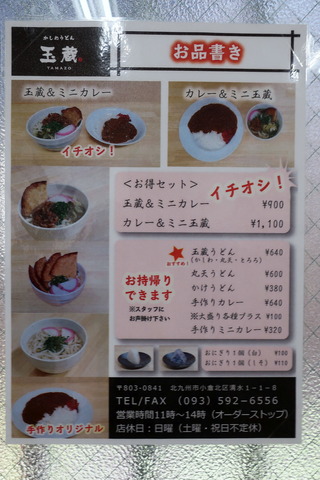 かしわうどん
玉蔵
TAMAZO
お品書き
玉蔵＆ミニカレー
カレー＆ミニ玉蔵
イチオシ！
＜お得セット＞
イチオシ！
玉蔵＆ミニカレー ¥900
カレー＆ミニ玉蔵 ¥1,100
おすすめ！
玉蔵うどん ¥640
（かしわ・丸天・とろろ）
丸天うどん ¥600
かけうどん ¥380
手作りカレー ¥640
※大盛り各種プラス ¥100
手作りミニカレー ¥320
お持帰り
できます
※スタッフに
お声掛け下さい
おにぎり1個（白） ¥100
おにぎり1個（しそ） ¥150
手作りオリジナル
〒803-0841 北九州市小倉北区清水1-1-8
TEL/FAX (093) 592-6556
営業時間11時～14時（オーダーストップ）
店休日：日曜（土曜・祝日不定休）